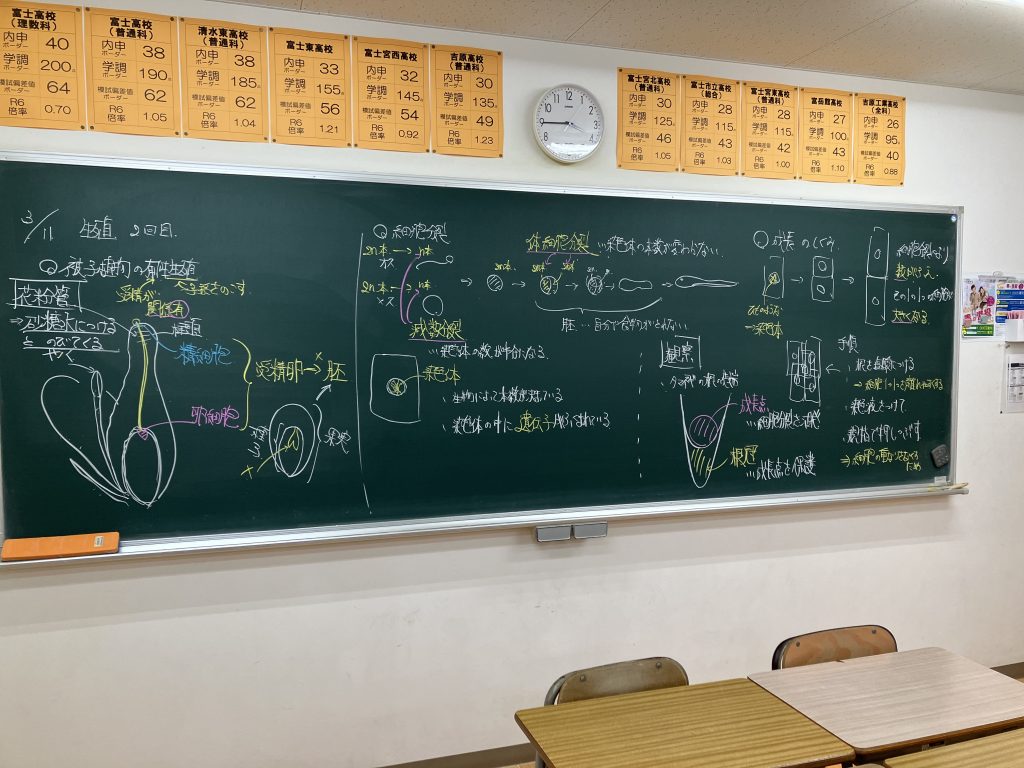 富士高校
(理数科)
内申
ボーダー 40
学調
ボーダー 200点
模試偏差値
ボーダー 64
R6
倍率 0.70
富士高校
(普通科)
内申
ボーダー 38
学調
ボーダー 190点
模試偏差値
ボーダー 62
R6
倍率 1.05
清水東高校
(普通科)
内申
ボーダー 38
学調
ボーダー 185点
模試偏差値
ボーダー 62
R6
倍率 1.04
富士東高校
内申
ボーダー 33
学調
ボーダー 155点
模試偏差値
ボーダー 56
R6
倍率 1.21
富士宮西高校
内申
ボーダー 32
学調
ボーダー 145点
模試偏差値
ボーダー 54
R6
倍率 0.92
吉原高校
(普通科)
内申
ボーダー 30
学調
ボーダー 135点
模試偏差値
ボーダー 49
R6
倍率 1.23
富士宮北高校
(普通科)
内申
ボーダー 30
学調
ボーダー 125点
模試偏差値
ボーダー 46
R6
倍率 1.05
富士市立高校
(総合)
内申
ボーダー 28
学調
ボーダー 115点
模試偏差値
ボーダー 43
R6
倍率 1.03
富士宮東高校
(普通科)
内申
ボーダー 28
学調
ボーダー 115点
模試偏差値
ボーダー 42
R6
倍率 1.00
富岳館高校
内申
ボーダー 27
学調
ボーダー 100点
模試偏差値
ボーダー 43
R6
倍率 1.10
吉原工業高校
(全科)
内申
ボーダー 26
学調
ボーダー 95点
模試偏差値
ボーダー 40
R6
倍率 0.88
3/11 生殖 2回目.
被子植物の有性生殖
受精が
関係有
子孫をのこす.
花粉管
⇒砂糖水につける
と のびてくる
精細胞
卵細胞
受精卵→胚
果実
細胞分裂
2n本→n本
オス
2n本→n本
メス
減数分裂
…染色体の数が半分になる.
染色体
・生物によって本数が決まっている
・染色体の中に遺伝子が
体細胞分裂…染色体の本数が変わらない.
2n本 2n本 2n本
胚…自分で合成ができない..
成長のしくみ
染色体
細胞分裂により
数がふえ.
その1つ1つの細胞が
大きくなる.
観察
成長点
…細胞分裂を
根冠
…成長点を保護
手順
・染色液をつけて.